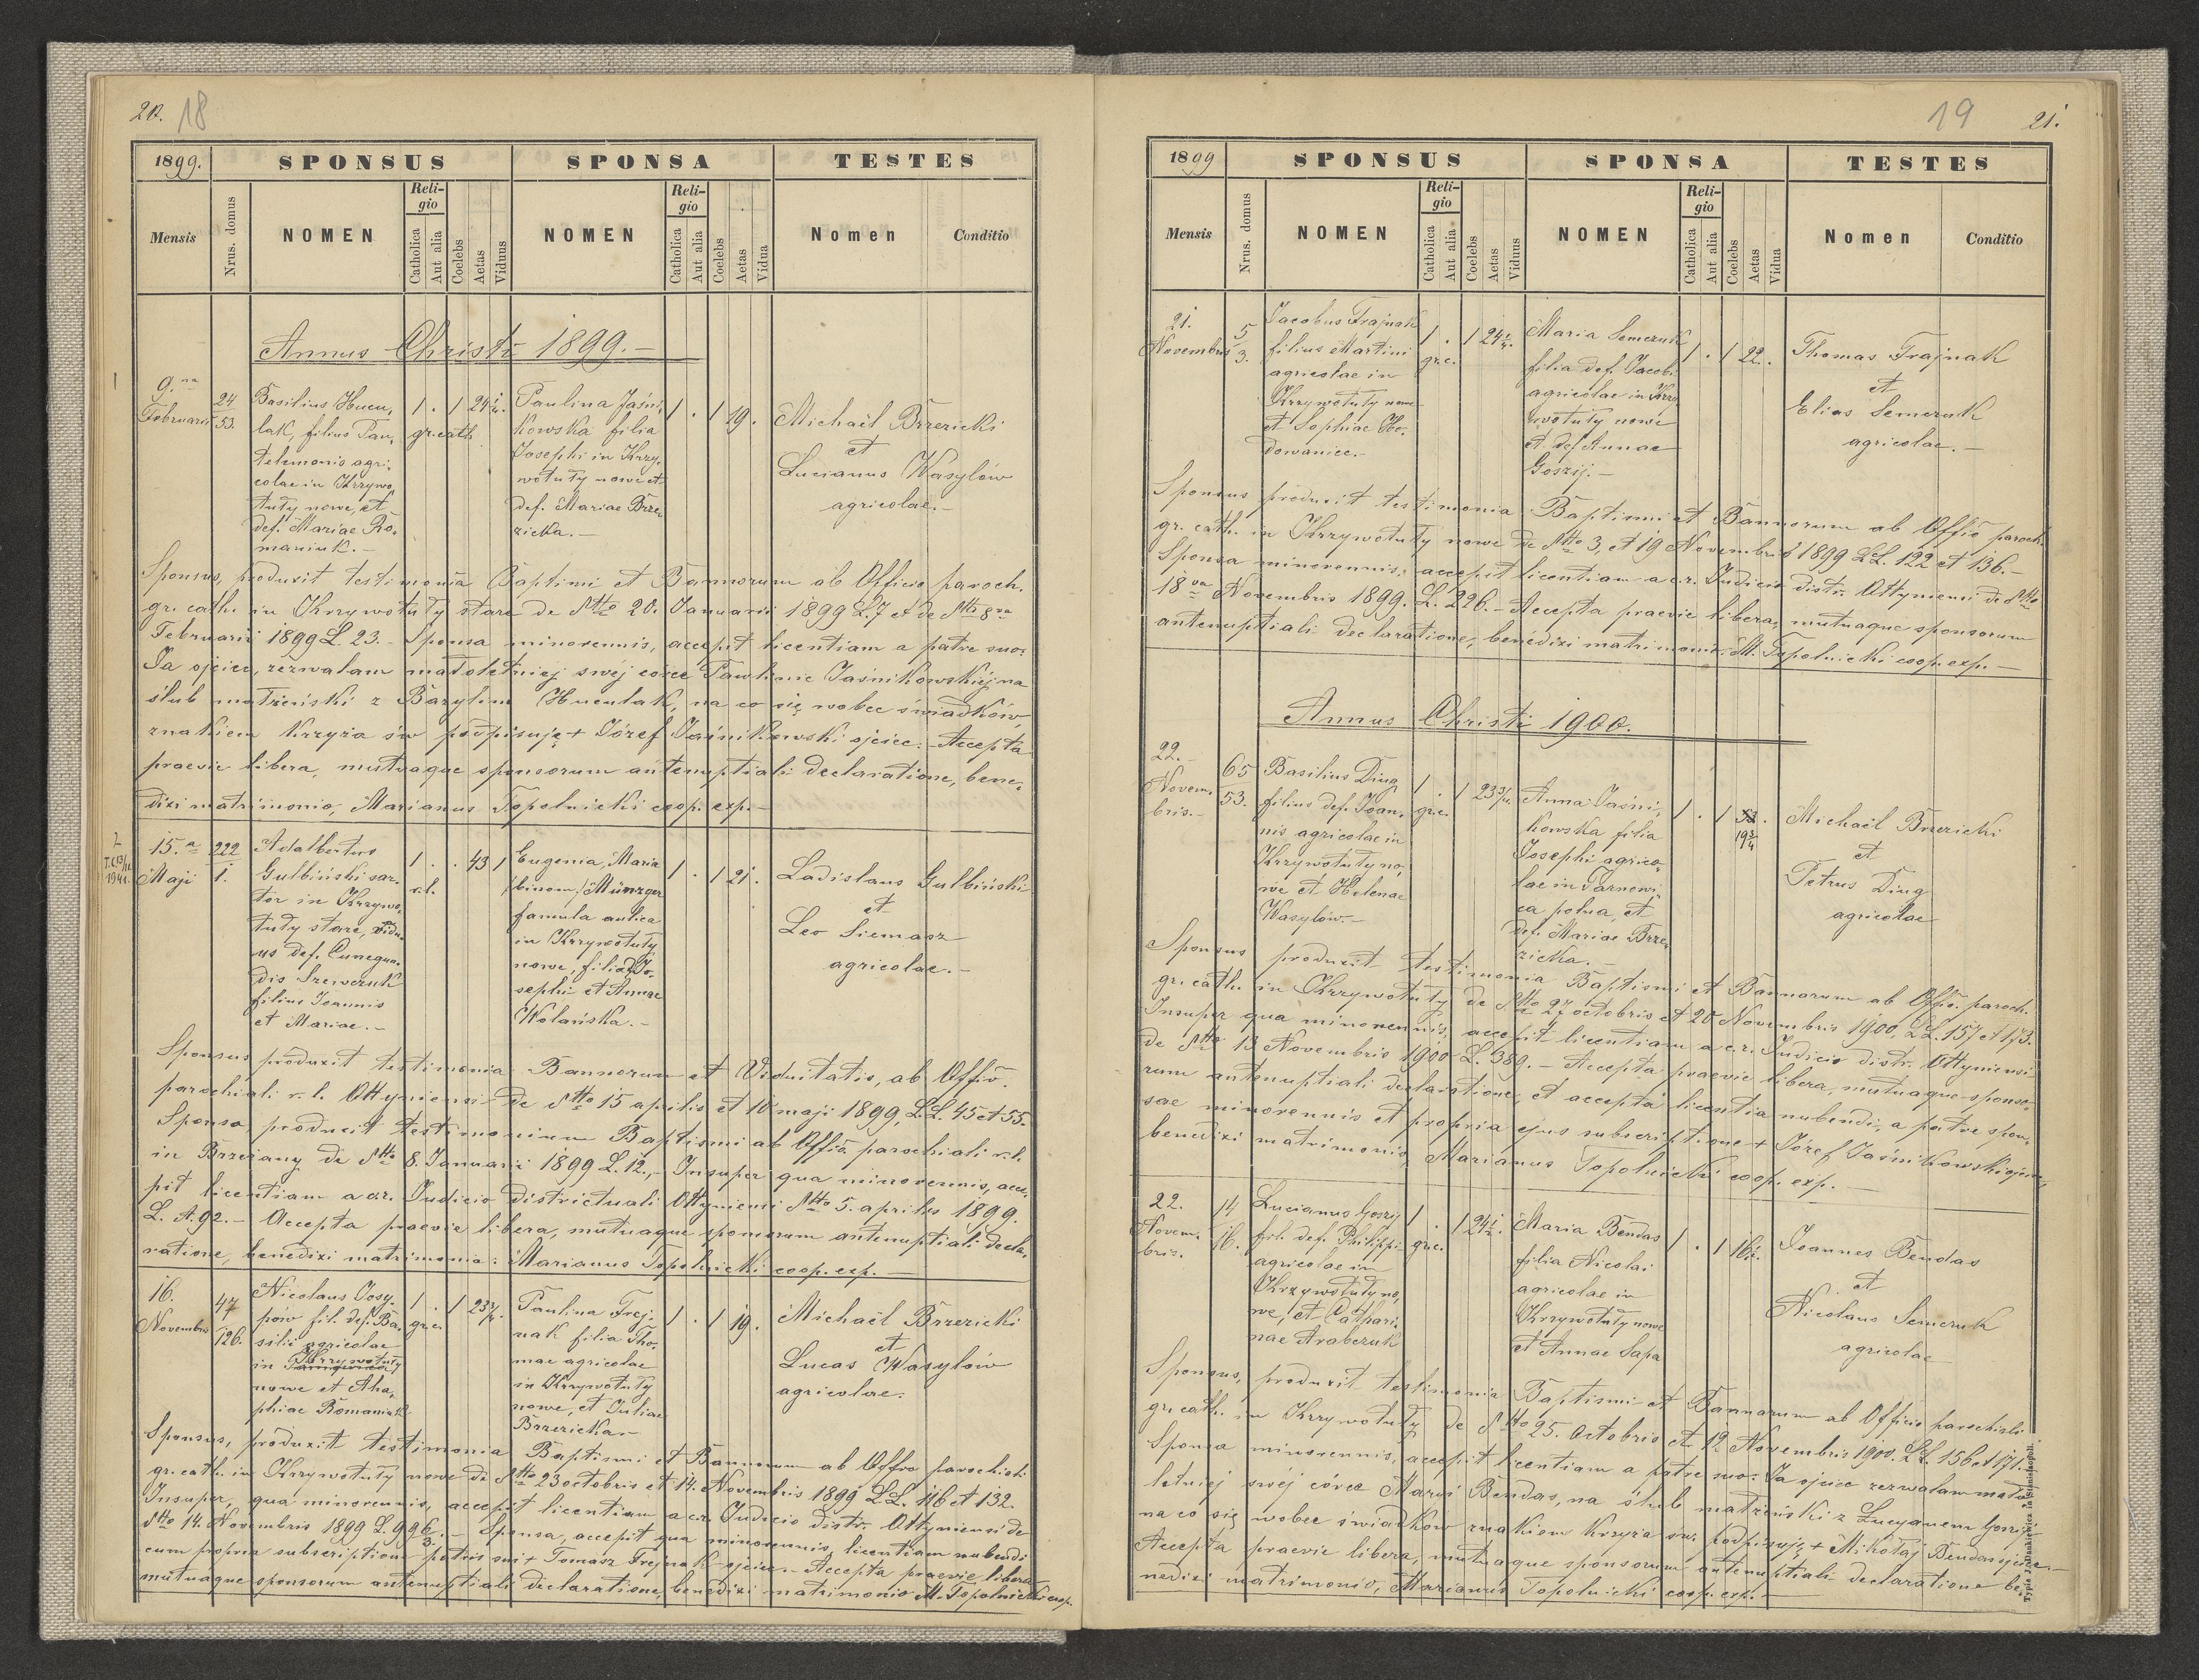 20. 18
1899. SPONSUS SPONSA TESTES
Mensis Nrus. domus NOMEN Religio Catholica Aut alia Coelebs Aetas Viduus NOMEN Religio Catholica Aut alia Coelebs Aetas Vidua Nomen Conditio
Annus Christi 1899.—
1
9.na
Februarii
24
53.
Basilius Hucu,
lak, filius Pan,
telemonis agri,
colae in Krzywo,
tuły nowe, et
def. Mariae Ro,
maniuk.—
1 . 1 24½.
gr.cath
Paulina Jaśni,
kowska filia
Josephi in Krzy,
wotuły nowe et
def. Mariae Brze
zicka.—
1 . 1 19.
Michaël Brzezicki
et
Lucianus Wasylów
agricolae.—
Sponsus, produxit testimonia Baptismi et Bannorum ab Officio paroch.
gr. cath. in Krzywotuły stare de dtto 20. Januarii 1899 L.7 et de dtto 8va
Februarii 1899 L 23.- Sponsa minorennis, accepit licentiam a patre suo:
Ja ojciec, zezwalam małoletniej swéj córce Pawlinie Jaśnikowskiéj na
ślub małżeński z Bazylim Huculak, na co się wobec świadków,
znakiem krzyża św podpisuję + Józef Jaśnikowski ojciec.- Accepta
praevie libera, mutuaque sponsorum antenuptiali declaratione, bene,
dixi matrimonio, Marianus Topolnicki coop. exp.—
2
1941.
15.a
Maji
222
1.
Adalbertus
Gulbiński sar,
tor in Krzywo,
tuły stare, vidu,
us def. Cunegun,
dis Szewczuk
filius Joannis
et Mariae.—
1 . . 43 1
r.l.
Eugenia, Maria
(binom) Münzger
famula aulica
in Krzywotuły
nowe, filia Jo,
sephi et Annae
Wolańska.—
1 . 1 21.
Ladislaus Gulbiński
et
Leo Siemasz
agricolae.—
Sponsus produxit testimonia Bannorum et Viduitatis, ab Offio.
parochiali r. l. Ottyniensi de dtto 15 aprilis et 10 maji 1899, L.L. 45 et 55.
Sponsa, produxit testimonium Baptismi ab Offio. parochiali r.l.
in Brzeżany de dtto 8. Januarii 1899 L.12,- Insuper qua minorennis, acce,
pit licentiam a c.r. Judicio districtuali Ottyniensi dtto 5. aprilis 1899.
L. A.92.— Accepta praevie libera, mutuaque sponsorum antenuptiali decla,
ratione, benedixi matrimonio: Marianus Topolnicki coop. exp.—
16.
Novembris
47
126.
Nicolaus Josy,
pów fil. def. Ba,
silii agricolae
in Krzywotuły
nowe et Aha,
phiae Romaniuk
1 . 1 23¾.
gr.c.
Paulina Frej,
nak filia Tho,
mae agricolae
in Krzywotuły
nowe, et Juliae
Brzezicka—
1 . 1 19.
Michaël Brzezicki
et
Lucas Wasylów
agricolae.
Sponsus, produxit testimonia Baptismi et Bannorum ab Offio parochiali
gr. cath. in Krzywotuły nowe de dtto 23 octobris et 14. Novembris 1899 L.L. 116 et 132.
Insuper, qua minorennis, accepit licentiam a c.r. Judicio distr. Ottyniensi de
dtto 14. Novembris 1899 L.996.- Sponsa, accepit qua minorennis, licentiam nubendi
3.
cum propria subscriptione patris sui + Tomasz Frejnak ojciec- Accepta praevie libera
mutuaque sponsorum antenuptiali declaratione, benedixi matrimonio M. Topolnicki coop.
19 21.
1899 SPONSUS SPONSA TESTES
Mensis Nrus. domus NOMEN Religio Catholica Aut alia Coelebs Aetas Viduus NOMEN Religio Catholica Aut alia Coelebs Aetas Vidua Nomen Conditio
21.
Novembris
5
3.
Jacobus Frajnak
filius Martini
agricolae in
Krzywotuły nowe
et Sophiae Ho,
dowaniec.—
1 . 1 24½.
gr.c.
Maria Semczuk
filia def. Jacobi
agricolae in Krzy
wotuły nowe
et def Annae
Goszij.—
1 . 1 22.
Thomas Frajnak
et
Elias Semczuk
agricolae.—
Sponsus produxit testimonia Baptismi et Bannorum ab Offio paroch.
gr. cath. in Krzywotuły nowe de dtto 3, et 19 Novembris 1899 L.L. 122 et 136.—
Sponsa minorennis, accepit licentiam a c.r. Judicio distr. Ottyniensi de dtto
18va Novembris 1899. L. 226.- Accepta praevie libera, mutuaque sponsorum
antenuptiali declaratione, benedixi matrimonio: M. Topolnicki coop. exp.—
Annus Christi 1900.
22.-
Novem,
bris.-
65
53.
Basilius Diug
filius def. Joan,
nis agricolae in
Krzywotuły no,
we et Helenae
Wasylów.—
1 1 23¾.
gr.c.
Anna Jaśni,
kowska filia
Josephi agrico,
lae in Tarnowi,
ca polna, et
def. Mariae Brze,
zicka.—
1 . 1
19¾
Michaël Brzezicki
et
Petrus Diug
agricolae
Sponsus produxit testimonia Baptismi et Bannorum ab Offio. paroch.
gr. cath. in Krzywotuły de dtto 27 octobris et 20 Novembris 1900, L.L. 157 et 173.
Insuper qua minorennis, accepit licentiam a c.r. Judicio distr. Ottyniensi
de dtto 13 Novembris 1900 L. 389.- Accepta praevie libera, mutuaque sponso,
rum antenuptiali declaratione, et accepta licentia nubendi, a patre spon,
sae minorennis et propria ejus subscriptione + Józef Jaśnikowski ojciec,
benedixi matrimonio, Marianus Topolnicki coop. exp.—
22.
Novem,
bris.
14
16.
Lucianus Goszij
fil. def. Philippi
agricolae in
Krzywotuły no,
we, et Cathari,
nae Arabczuk
1 . 1 24½.
gr.c.
Maria Bendas
filia Nicolai
agricolae in
Krzywotuły nowe
et Annae Sapa
1 . 1 16½.
Joannes Bendas
et
Nicolaus Semczuk
agricolae
Sponsus, produxit testimonia Baptismi et Bannorum ab Officio parochiali
gr. cath. in Krzywotuły de dtto 25. Octobris et 12 Novembris 1900. L.L. 156 et 171.
Sponsa minorennis, accepit licentiam a patre suo: Ja ojciec zezwalam mało,
letniej swéj córce Maryi Bendas, na ślub małżeński z Lucyanem Goszij
na co się wobec świadków znakiem krzyża św. podpisuję + Mikołaj Bendas ojciec.—
Accepta praevie libera, mutuaque sponsorum antenuptiali declaratione be,
nedixi matrimonio, Marianus Topolnicki coop. exp.—